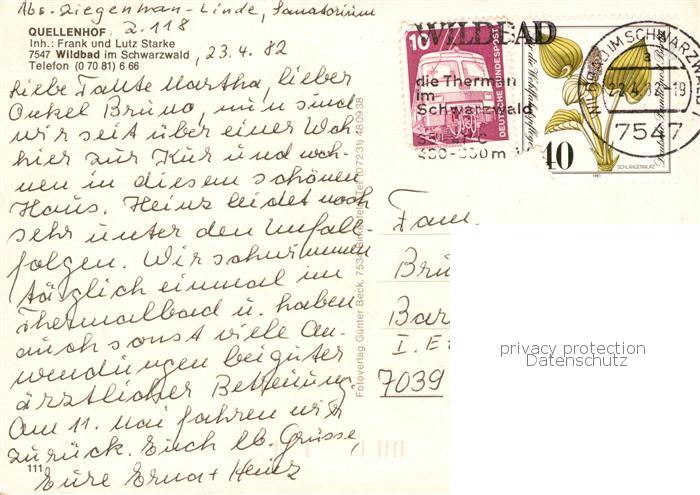 Abs. Ziegenhan-Linde, Sanatorium
QUELLENHOF Z. 118
Inh.: Frank und Lutz Starke
7547 Wildbad im Schwarzwald 23.4.82
Telefon (0 70 81) 6 66
Liebe Tante Martha, lieber
Onkel Bruno, nun sind
wir seit über einer Woche
hier zur Kur und woh-
nen in diesem schönen
Haus. Heinz leidet noch
sehr unter den Unfall-
folgen. Wir schwimmen
täglich einmal im
Thermalbad u. haben
auch sonst viele An-
wendungen bei guter
ärztlicher Betreuung.
Am 11. Mai fahren wir
zurück. Euch lb. Grüsse,
Eure Erna + Heinz
111
Fotoverlag Günter Beck, 7534 Tel. (0 72 31) 48 09 38
10
DEUTSCHE BUNDESPOST
WILDBAD
die Thermen
im
Schwarzwald
WILDBAD IM SCHWARZWALD
a
-19
7547
40
SCHLANGENWURZ
1981
Fam.
Brü
Bar
7039
privacy protection
Datenschutz